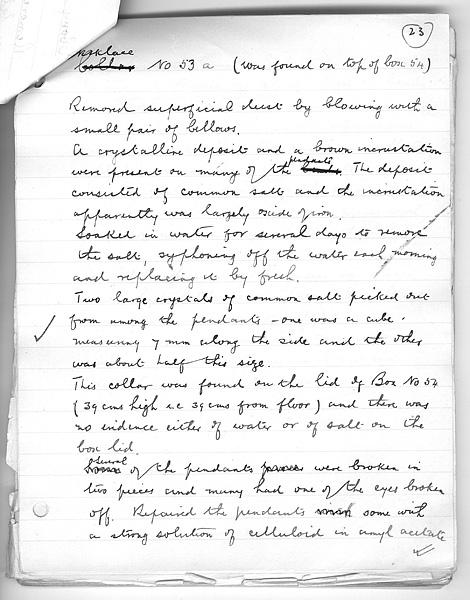 23
necklace
collar No 53 a (was found on top of box 54)
Removed superficial dust by blowing with a
small pair of bellows.
A crystalline deposit and a brown incrustation
were present on many of the pendants. The deposit
consisted of common salt and the incrustation
apparently was largely oxide of iron.
Soaked in water for several days to remove
the salt, syphoning off the water each morning
and replacing it by fresh.
Two large crystals of common salt picked out
from among the pendants - one was a cube
measuring 7 mm along the side and the other
was about half this size.
This collar was found on the lid of Box No 54
(39 cms high i.e 39 cms from floor) and there was
no evidence either of water or of salt on the
box lid.
Several of the pendants were broken in
two pieces and many had one of the eyes broken
off. Repaired the pendants some with
a strong solution of celluloid in amyl acetate